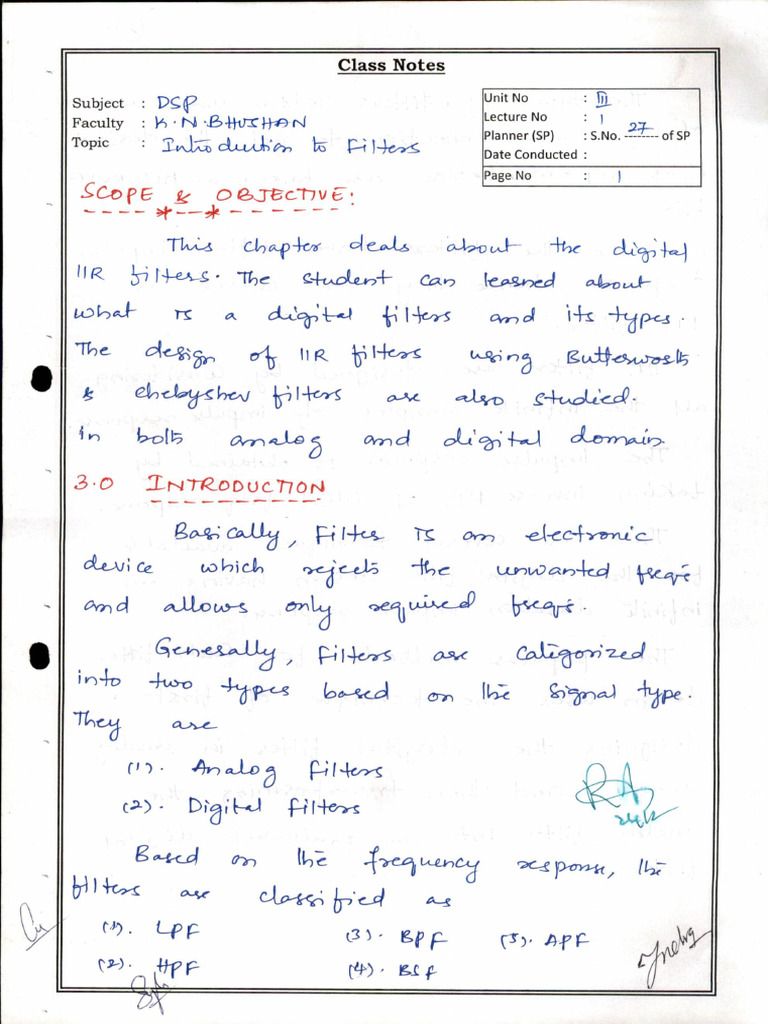 Class Notes
Subject : DSP
Faculty : K.N.BHUSHAN
Topic : Introduction to Filters
Unit No : III
Lecture No : 1
Planner (SP) : S.No. 27 of SP
Date Conducted :
Page No : 1
SCOPE & OBJECTIVE:
This chapter deals about the digital
IIR filters. The student can learned about
what is a digital filters and its types.
The design of IIR filters using Butterworth
& chebyshev filters are also studied.
in both analog and digital domain.
3.0 INTRODUCTION
Basically, Filter is an electronic
device which rejects the unwanted freq's
and allows only required freq's.
Generally, filters are catigorized
into two types based on the signal type.
They are
(1). Analog filters
(2). Digital filters
RA
Based on the frequency response, the
filters are classified as
(1). LPF (3). BPF (5). APF
(2). HPF (4). BSF